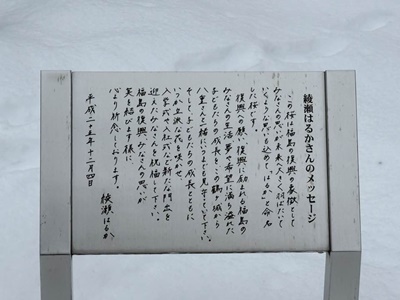 綾瀬はるかさんのメッセージ
この桜は福島の復興の象徴として
みなさんの思いが未来へ大きく羽ばたいて
いくような思いも込めて「はるか」と命名
した桜です。
復興への願い、復興に励まれる福島の
みなさんの生活、夢や希望に満ち溢れた
子どもたちの成長を、この鶴ヶ城から
八重さんと一緒にいつまでも見守っていて下さい。
そして、子どもたちの成長とともに
いつか立派な花を咲かせ、
入学式や入社式など新たな門出を
迎えた人々を祝福して下さい。
福島の復興、みなさんの思いが
実を結びます様に、
心より祈念しております。
平成二十五年十二月四日
綾瀬はるか